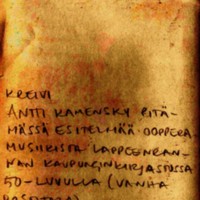 KREIVI
ANTTI KAMENSKY PITÄ-
MÄSSÄ ESITELMÄÄ OOPPERA-
MUSIIKISTA LAPPEENRAN-
NAN KAUPUNGINKIRJASTOSSA
50-LUVULLA (VANHA